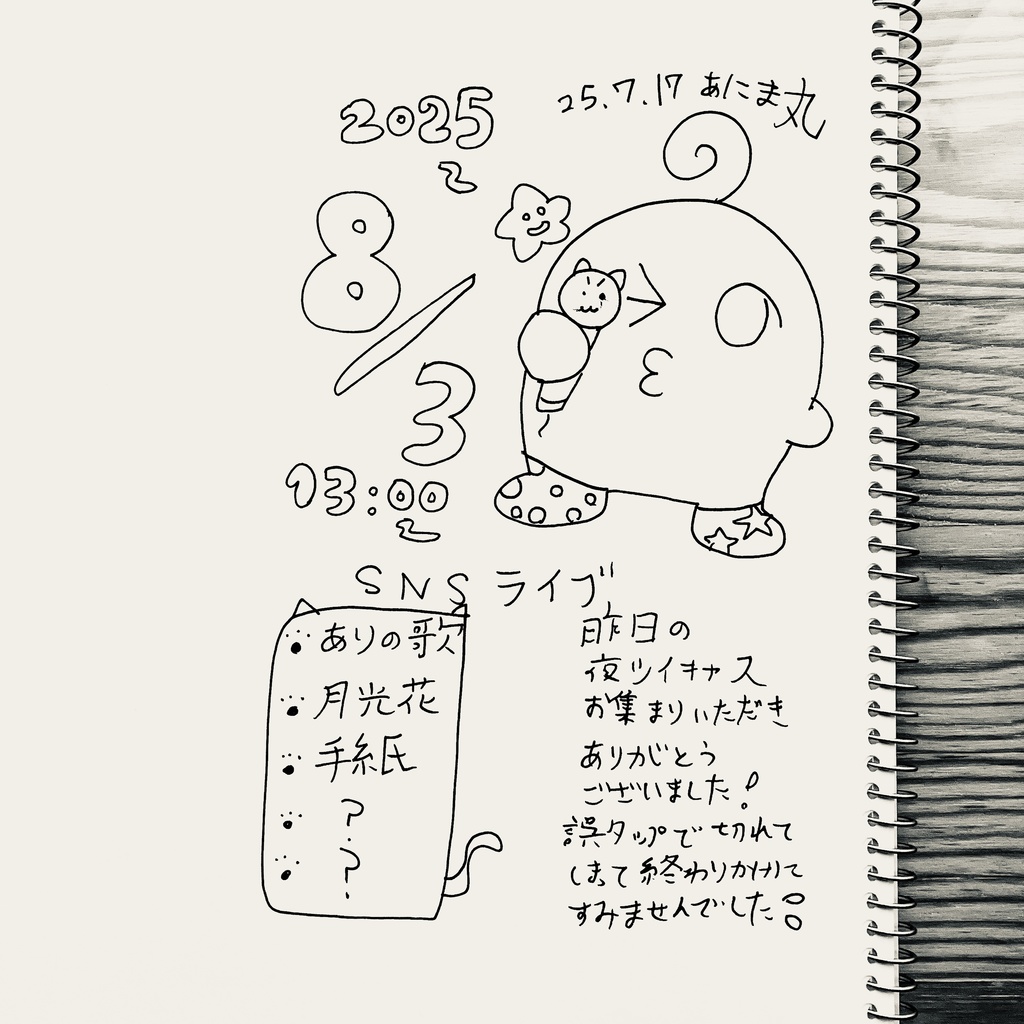 25.7.17 あにま丸
2025
8/3
13:00
SNSライブ
ありの歌
月光花
手紙
?
?
昨日の
夜ツイキャス
お集まりいただき
ありがとう
ございました!
誤タップで切れて
しまって終わりかけて
すみませんでした!